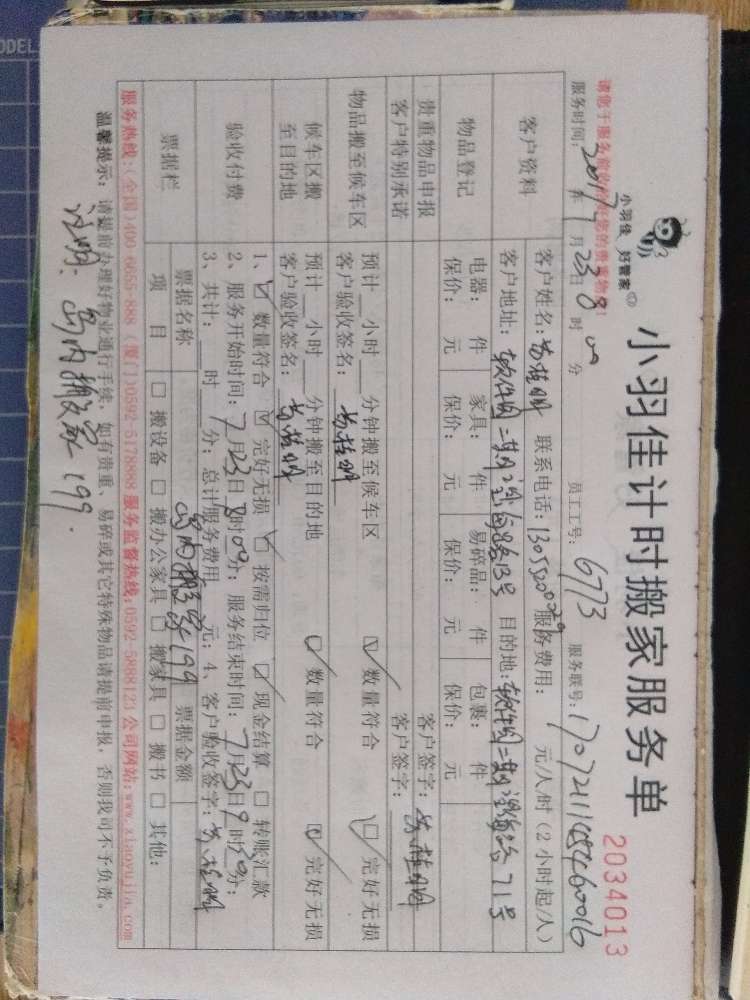 小羽佳 好管家
小羽佳计时搬家服务单
2034013
服务时间: 2017年7月23日8时00分 员工工号: 6773 服务联号:
客户资料
客户姓名: 联系电话: 服务费用: 元/人/时(2小时起/人)
客户地址: 软件园二期望海路13号 目的地: 软件园二期望海路71号
物品登记
电器: 件 家具: 件 易碎品: 件 包裹: 件
保价: 元 保价: 元 保价: 元 保价: 元
贵重物品申报 客户签字:
客户特别承诺 客户签字:
物品搬至候车区
预计__小时__分钟搬至候车区 ☑数量符合 ☑完好无损
客户验收签名:
候车区搬至目的地
预计__小时__分钟搬至目的地 ☑数量符合 ☑完好无损
客户验收签名:
验收付费
1、☑数量符合 ☑完好无损 ☑按需归位 ☑现金结算 □转账汇款
2、服务开始时间: 7月23日8时00分; 服务结束时间: 7月23日9时30分;
3、共计: __时__分; 总计服务费用__元; 4、客户验收签字:
票据栏
票据名称 岛内搬家199 票据金额
项目 □搬设备 □搬办公家具 □搬家具 □搬书 □其他:
服务热线:(全国)400-6655-888 (厦门)0592-5178888 服务监督热线:0592-5888123 公司网站:www.xiaoyujia.com
温馨提示: 请提前办理好物业通行手续, 如有贵重、易碎或其它特殊物品请提前申报, 否则我司不予负责。
注明: 岛内搬家199.